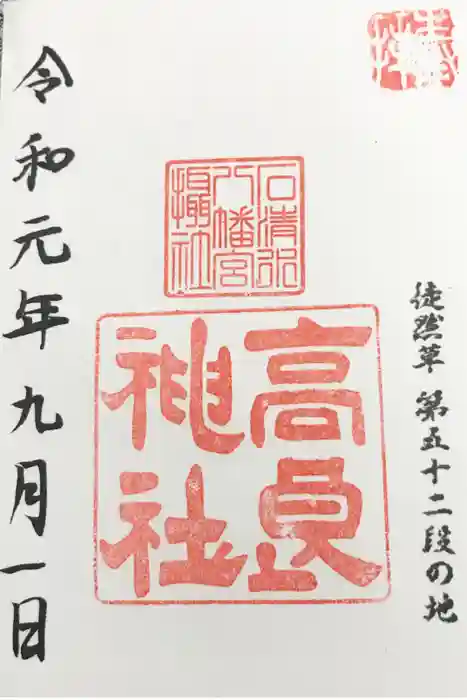 奉拝
徒然草 第五十二段の地
石清水
八幡宮
摂社
高良
神社
令和元年九月一日